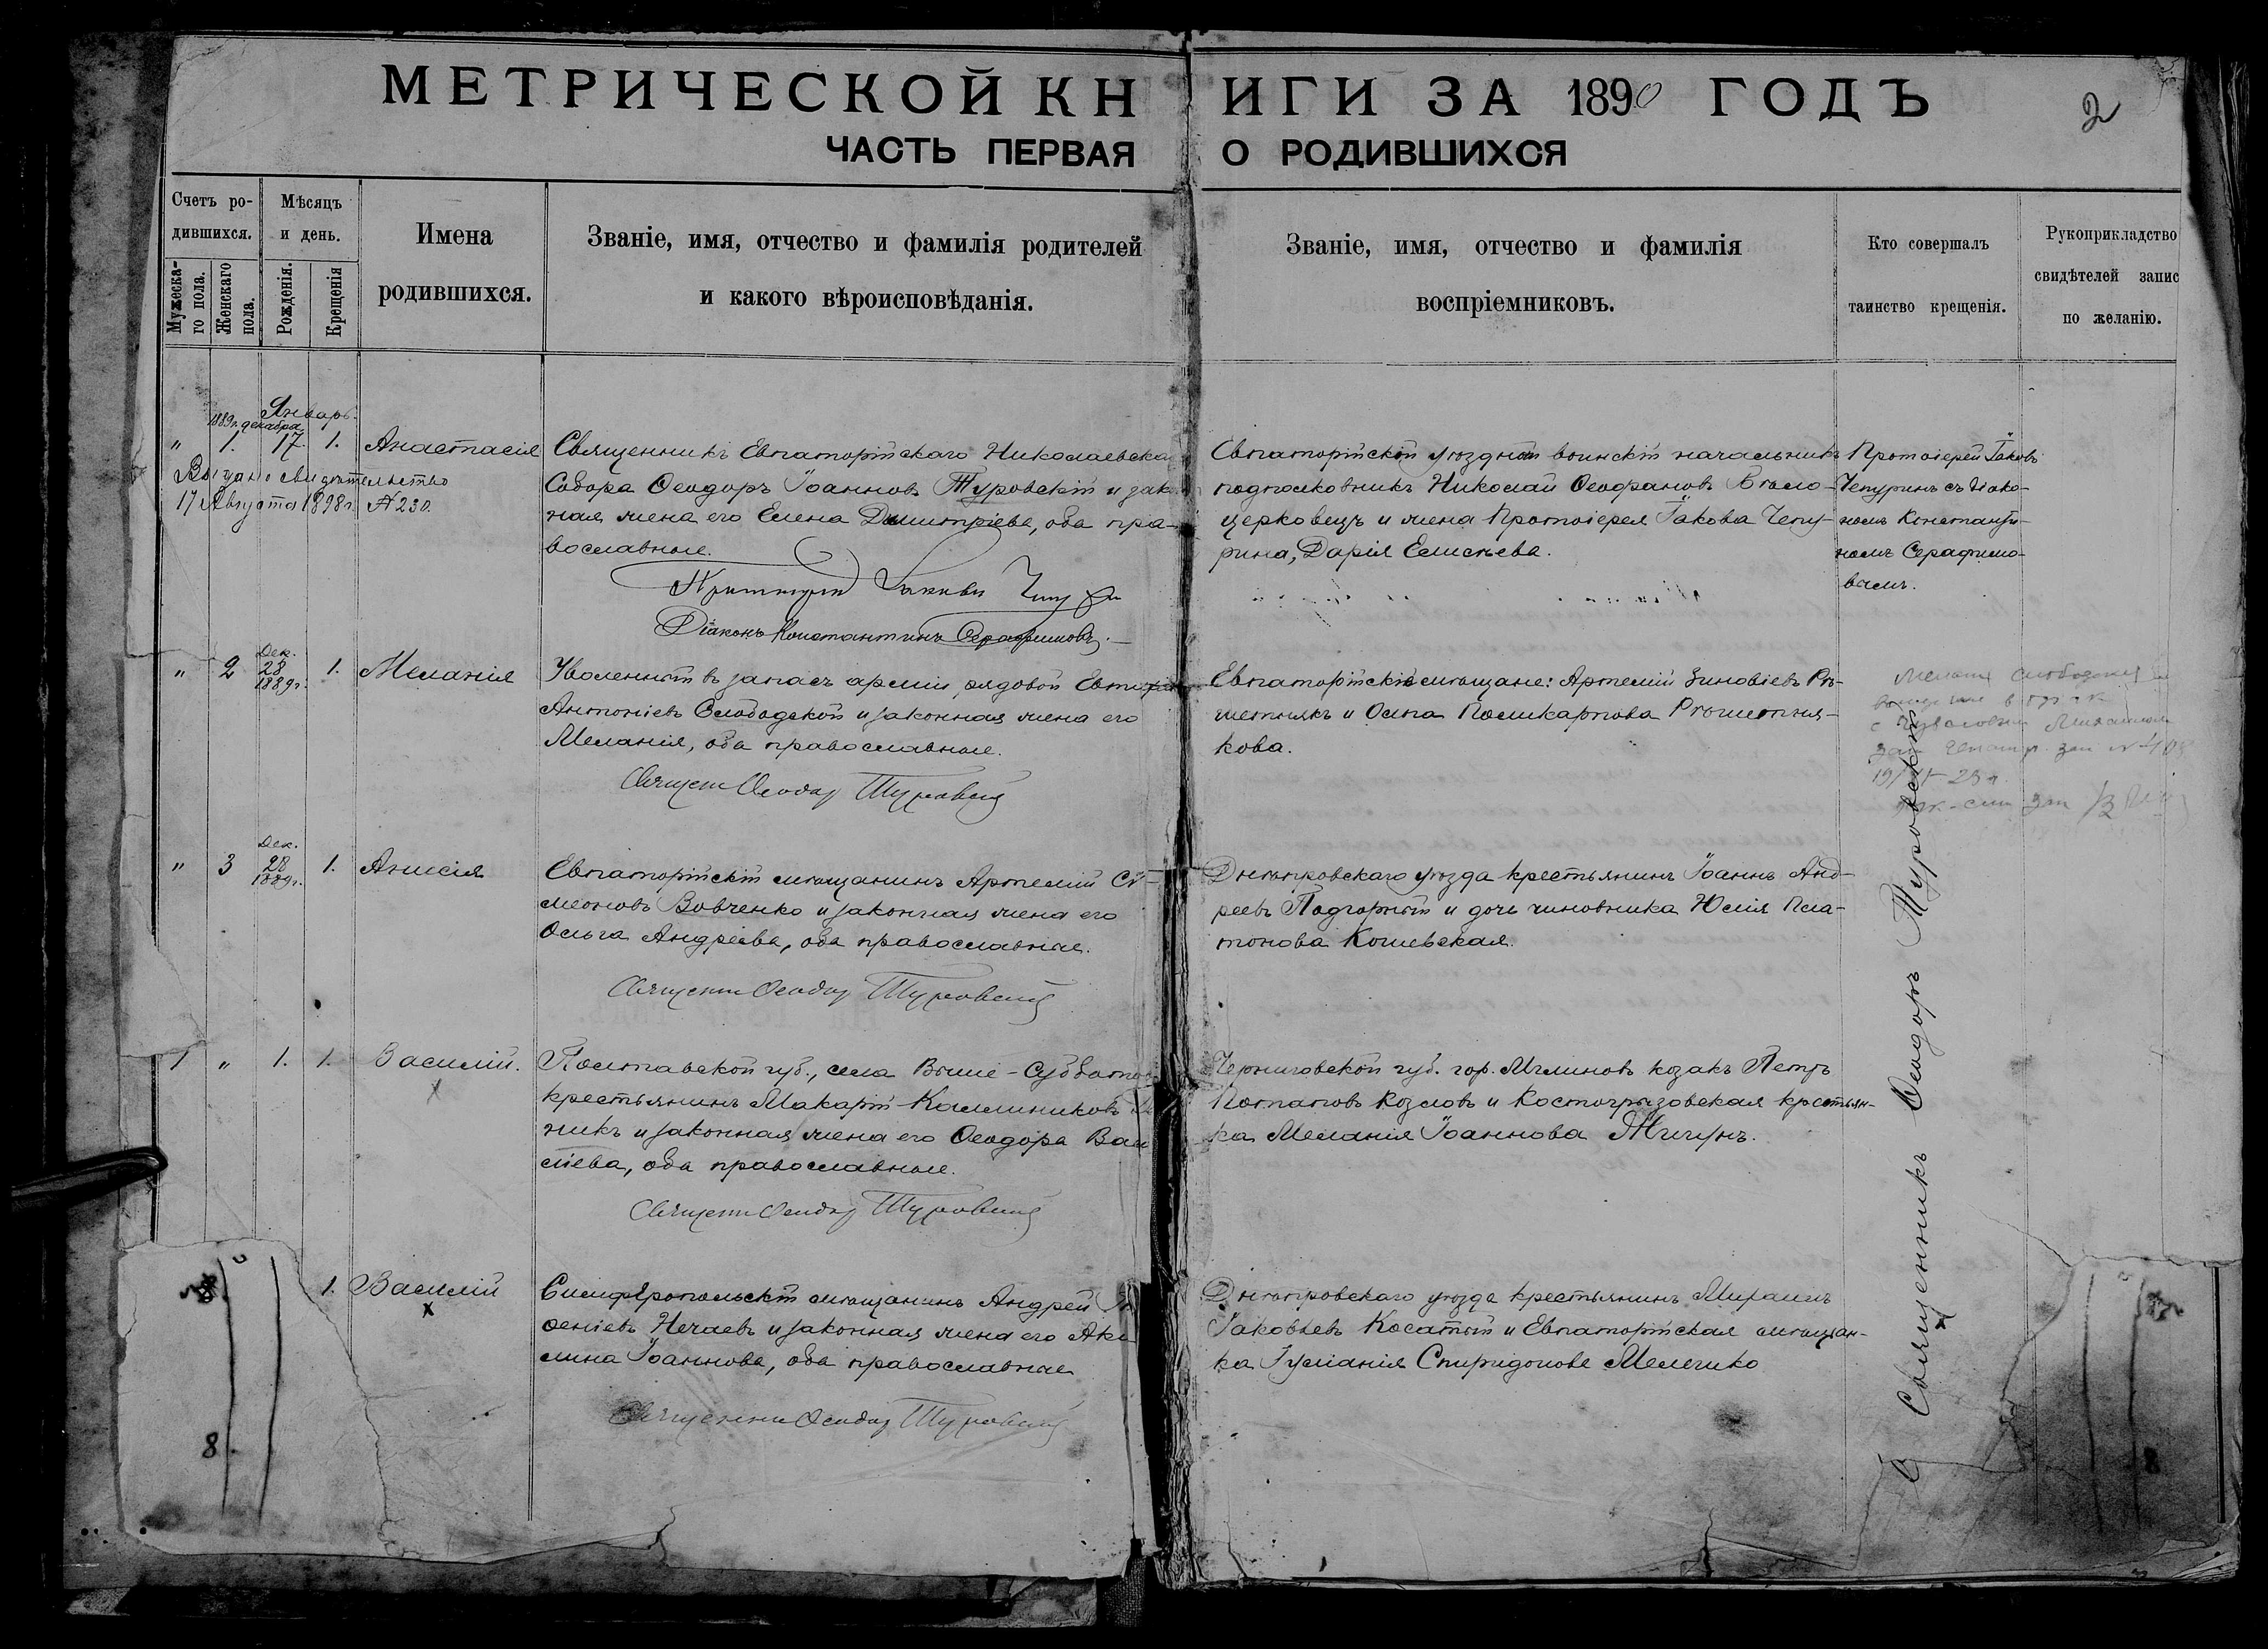 МЕТРИЧЕСКОЙ КНИГИ ЗА 1890 ГОДЪ
2
ЧАСТЬ ПЕРВАЯ О РОДИВШИХСЯ
Счетъ ро-
дившихся.
Мужеска-
го пола.
Женскаго
пола.
Мѣсяцъ
и день.
Рожденія.
Крещенія
Имена
родившихся.
Званіе, имя, отчество и фамилія родителей
и какого вѣроисповѣданія.
Званіе, имя, отчество и фамилія
воспріемниковъ.
Кто совершалъ
таинство крещенія.
Рукоприкладство
свидѣтелей запис
по желанію.
Январь.
1889 г. декабря
" 1. 17. 1. Анастасія
Выдано свидѣтельство
17 Августа 1898 г. № 230.
Священникъ Евпаторійскаго Николаевска
Собора Ѳеодоръ Іоанновъ Туровскій и зак
ная жена его Елена Димитріева, оба пра-
вославные.
Діаконъ Константинъ Серафимовъ.
Евпаторійскій уѣздный воинскій начальникъ
подполковникъ Николай Ѳеофановъ Бѣло-
церковецъ и жена Протоіерея Іакова Чепу-
рина, Дарія Елисѣева.
Протоіерей Іаковъ
Чепуринъ съ Діако-
номъ Константи-
номъ Серафимо-
вымъ.
" 2 Дек. 28 1889 г. 1. Меланія
Уволенный въ запасъ арміи рядовой
Антоніевъ Слободской и законная жена его
Меланія, оба православные.
Священ Ѳеодор Туровскій
Евпаторійскіе мѣщане: Артемій Зиновіевъ Рѣ-
шетнякъ и Осипа Поликарпова Рѣшетня-
кова.
" 3 Дек. 28 1889 г. 1. Анисія
Евпаторійскій мѣщанинъ Артемій Си-
меоновъ Вовченко и законная жена его
Ольга Андреева, оба православные.
Священн Ѳеодор Туровскій
Днѣпровскаго уѣзда крестьянинъ Іоаннъ Анд-
реевъ Подгорный и дочь чиновника Юлія Пла-
тонова Кошевская.
1 " 1. 1. Василій.
х
Полтавской губ., села Выше-Субботов
крестьянинъ Макарій Каллиниковъ
никъ и законная жена его Ѳеодора Васи
сіева, оба православные.
Священн Ѳеодор Туровскій
Черниговской губ. гор. Мглиновъ козакъ Петръ
Потаповъ Козловъ и Костогрызовская крестьян-
ка Меланія Іоаннова Жигунъ.
1. Василій
х
Симферопольскій мѣщанинъ Андрей
сеніевъ Нечаевъ и законная жена его Аки
лина Іоаннова, оба православные
Священн Ѳеодор Туровскій
Днѣпровскаго уѣзда крестьянинъ Михаилъ
Іаковлевъ Косатый и Евпаторійская мѣщан-
ка Іуліанія Спиридонова Мелешко
Священникъ Ѳеодоръ Туровскій
8
8